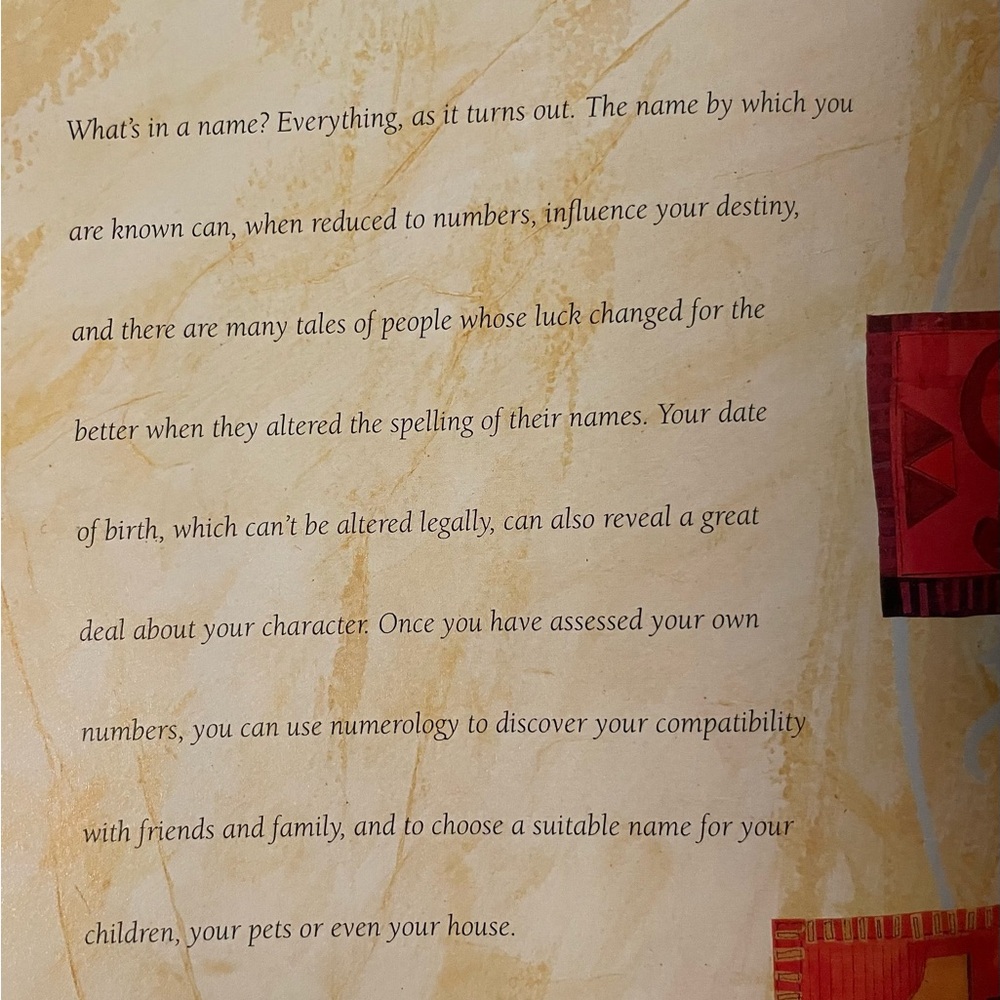 What's in a name? Everything, as it turns out. The name by which you
are known can, when reduced to numbers, influence your destiny,
and there are many tales of people whose luck changed for the
better when they altered the spelling of their names. Your date
of birth, which can't be altered legally, can also reveal a great
deal about your character. Once you have assessed your own
numbers, you can use numerology to discover your compatibility
with friends and family, and to choose a suitable name for your
children, your pets or even your house.